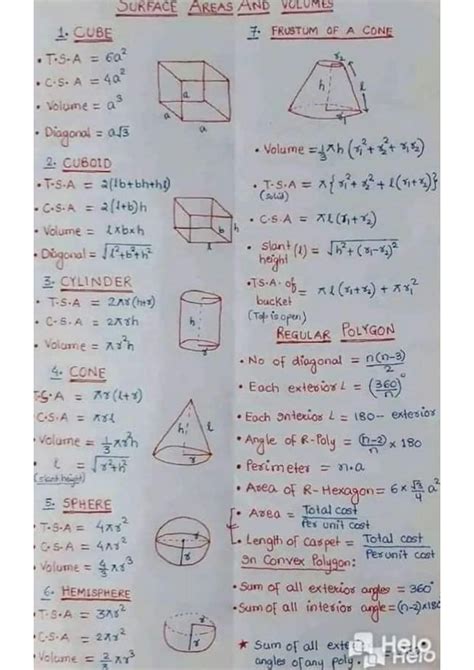 SURFACE AREAS AND VOLUMES
1. CUBE
• T·S·A = 6a²
• C·S·A = 4a²
• Volume = a³
• Diagonal = a√3
a
a
a
2. CUBOID
• T·S·A = 2(lb+bh+hl)
• C·S·A = 2(l+b)h
• Volume = l×b×h
• Diagonal = √l²+b²+h²
h
b
l
3. CYLINDER
• T·S·A = 2πr(h+r)
• C·S·A = 2πrh
• Volume = πr²h
h
r
4. CONE
T·S·A = πr(l+r)
C·S·A = πrl
Volume = 1/3 πr²h
• l = √r²+h²
(slant height)
h
l
r
5. SPHERE
T·S·A = 4πr²
C·S·A = 4πr²
Volume = 4/3 πr³
r
6. HEMISPHERE
T·S·A = 3πr²
C·S·A = 2πr²
Volume = 2/3 πr³
r
7. FRUSTUM OF A CONE
r₂
h
l
r₁
• Volume = 1/3 πh(r₁²+r₂²+r₁r₂)
• T·S·A = π{r₁²+r₂²+l(r₁+r₂)}
(solid)
• C·S·A = πl(r₁+r₂)
• slant height (l) = √h²+(r₁-r₂)²
• T·S·A· of bucket = πl(r₁+r₂)+πr₁²
(Top is open)
REGULAR POLYGON
• No of diagonal = n(n-3)/2
• Each exterior L = (360/n)°
• Each Interior L = 180-- exterior
• Angle of R-Poly = (n-2)/n × 180
• Perimeter = n·a
• Area of R-Hexagon = 6×√3/4 a²
• Area = Total cost/Per unit cost
• Length of carpet = Total cost/Per unit cost
In Convex Polygon:
• Sum of all exterior angles = 360°
• Sum of all interior angle = (n-2)×180
★ Sum of all
angles of any poly
Helo
Helo